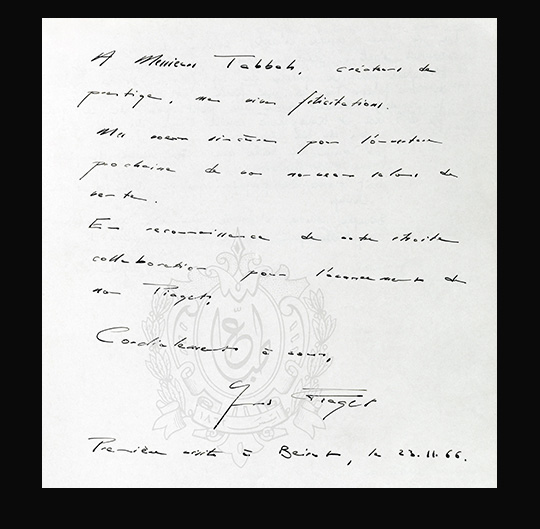 A Messieurs Tabbah, créateurs de
prestige, mes vives félicitations.
Mes voeux sincères pour l'ouverture
prochaine de vos nouveaux salons de
vente.
En reconnaissance de votre étroite
collaboration pour l'avancement de
nos Piagets,
Cordialement à vous,
Yves Piaget
Première visite à Beirut, le 23.11.66.